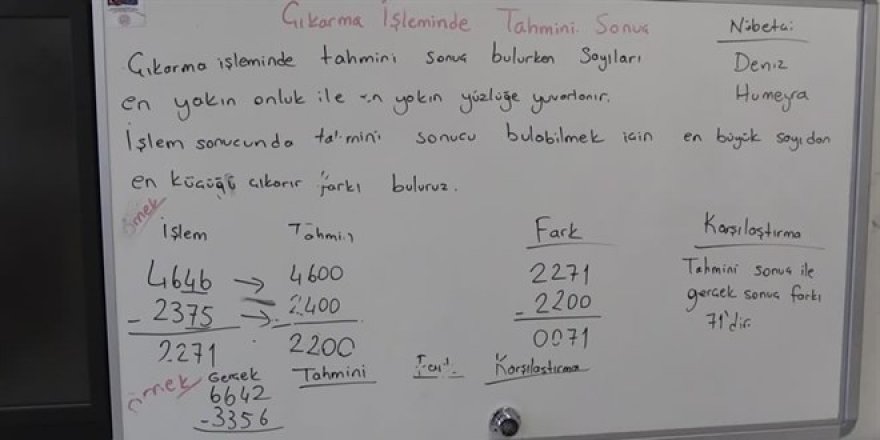 Çıkarma İşleminde Tahmini Sonuç
Nöbetçi:
Deniz
Humeyra
Çıkarma işleminde tahmini sonuç bulurken Sayıları
en yakın onluk ile en yakın yüzlüğe yuvarlanır.
İşlem sonucunda tahmini sonucu bulabilmek için en büyük sayıdan
en küçüğü çıkarır farkı buluruz.
örnek
İşlem Tahmin Fark Karşılaştırma
4646 → 4600 2271 Tahmini sonuç ile
- 2375 → - 2400 - 2200 gerçek sonuç farkı
2271 2200 0071 71'dir.
örnek
Gerçek Tahmini Fark Karşılaştırma
6642
-3356